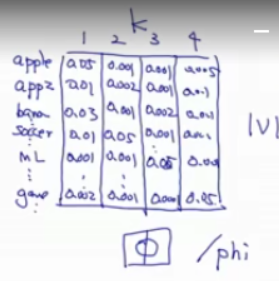 k
1 2 3 4
apple 0.05 0.001 0.001 0.005
app2 0.01 0.002 0.001 0.001
0.03 0.001 0.002 0.001
soccer 0.01 0.05 0.001
|V|
ML 0.001 0.001 0.05
⋮ ⋮
game 0.002 0.001 0.001 0.05
⋮
Φ /phi